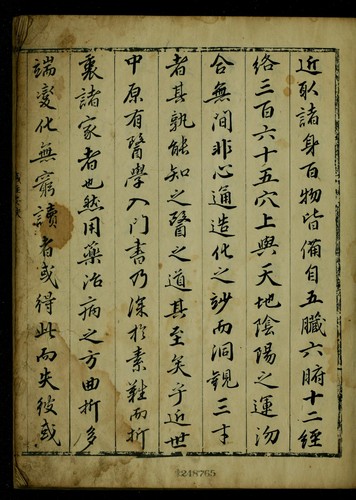 近取諸身百物皆備自五臟六腑十二經
絡三百六十五穴上與天地陰陽之運沕
合無間非心通造化之妙而洞觀三才
者其孰能知之醫之道其至矣乎近世
中原有醫學入门書乃深於素難而折
裏諸家者也然用藥治病之方曲折多
端變化無窮讀者或得此而失彼或
248765